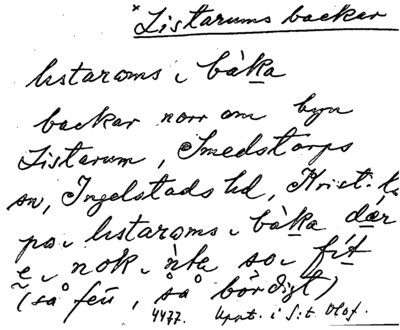 × Listarums backar
lıstarɷms ı bàka
backar norr om byn
Listarum, Smedstorps
sn, Ingelstads hd, Krist. l
pa ı lıstarɷms ı bàka dær
e ı nok ı ìnte so ı fít
(så fett, så bördigt)
4477. Uppt. i S:t Olof.